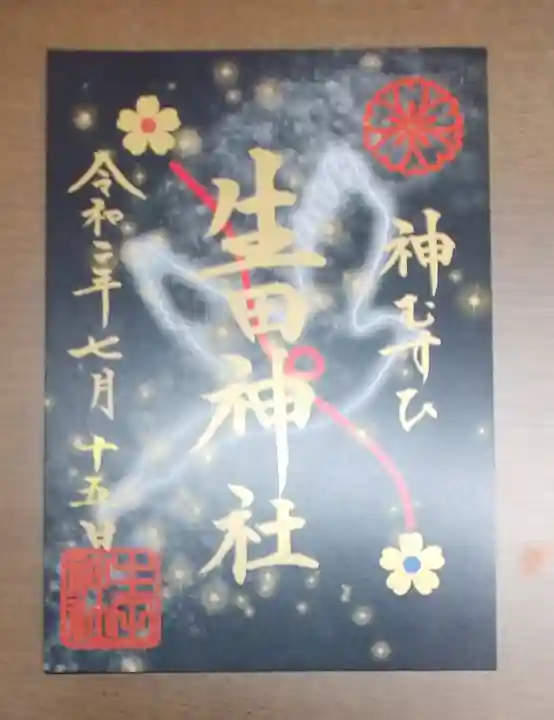 神むすひ
生田神社
令和二年七月十五日